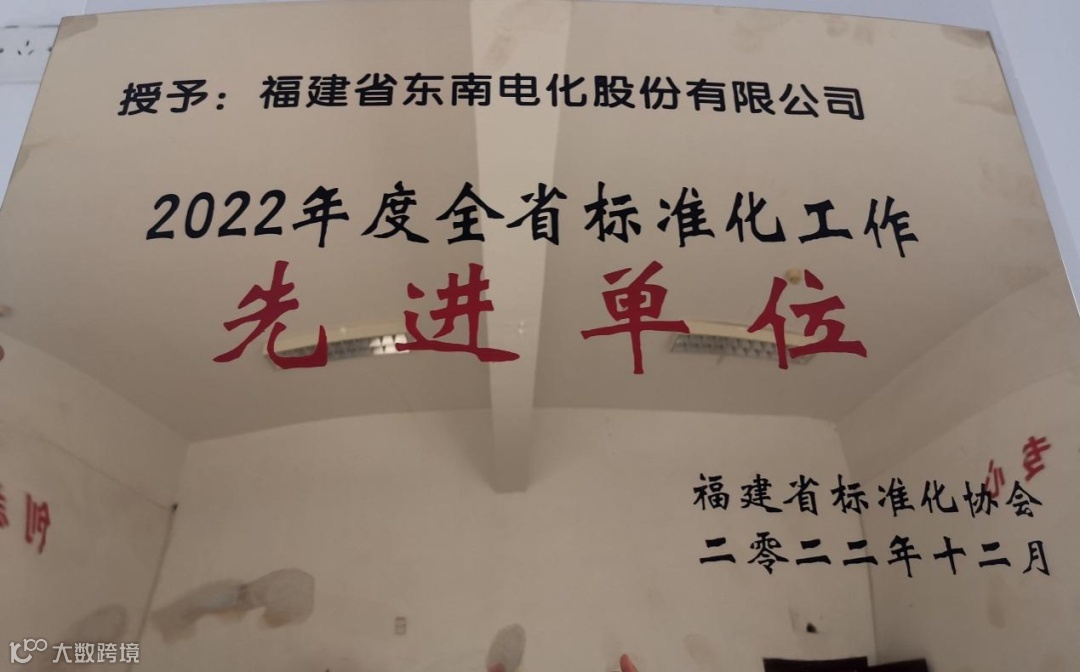 授予：福建省东南电化股份有限公司
2022年度全省标准化工作
先进单位
福建省标准化协会
二零二二年十二月
大数跨境